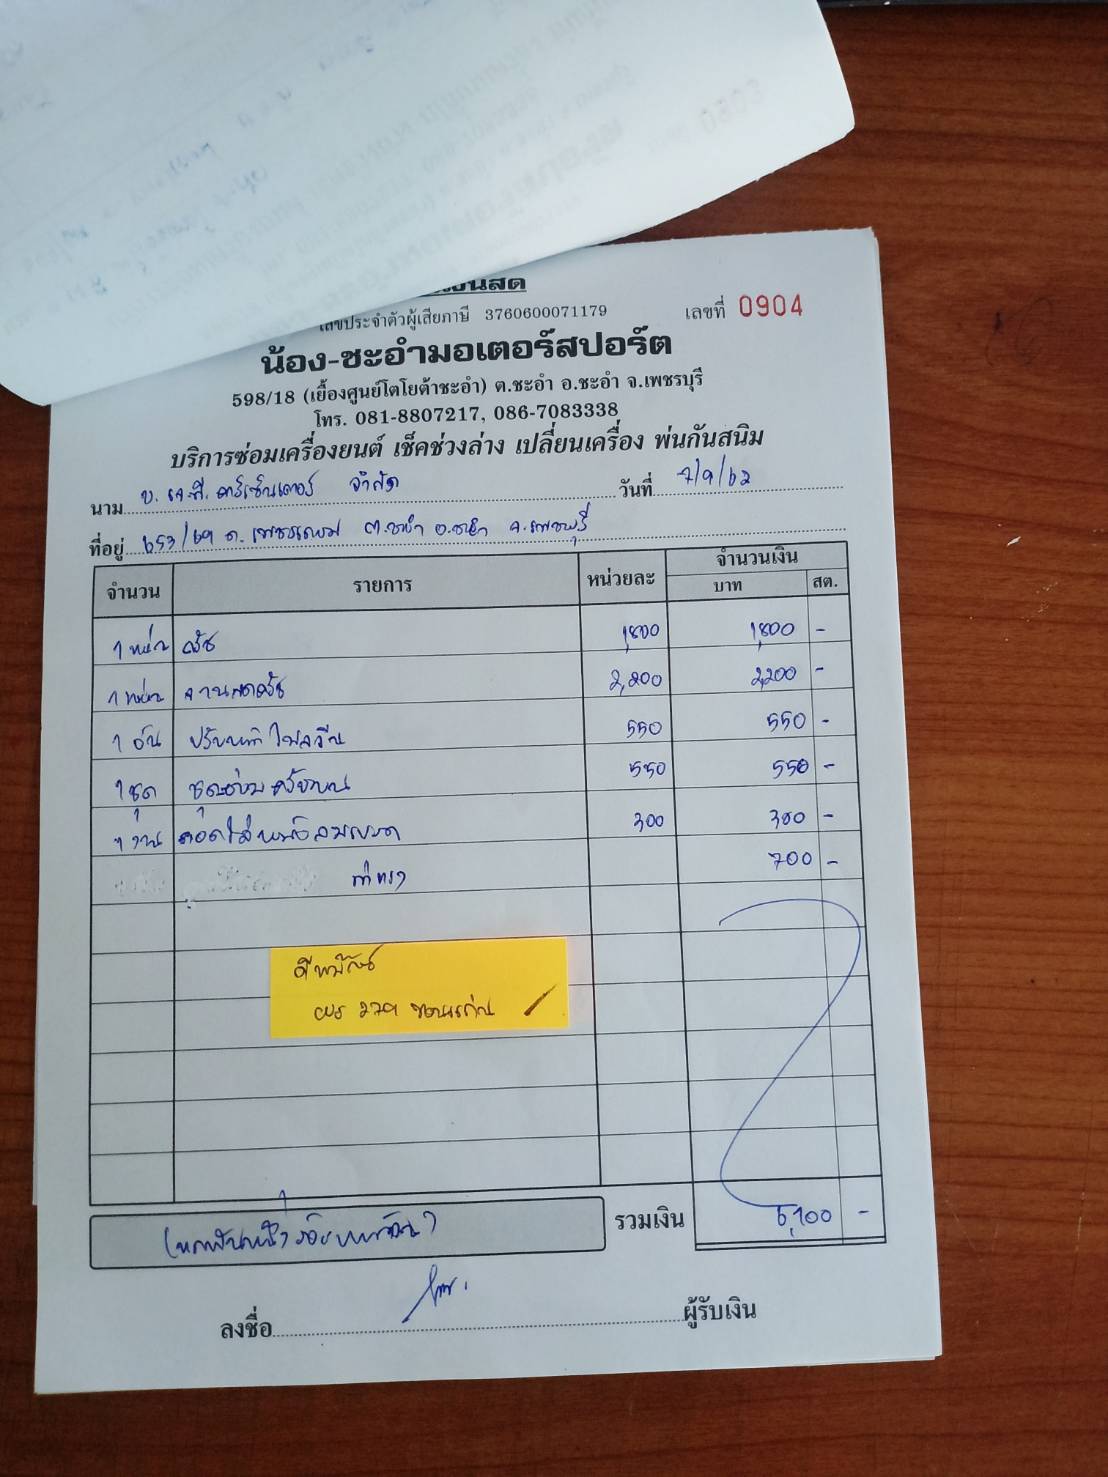 เงินสด
เลขประจำตัวผู้เสียภาษี 3760600071179 เลขที่ 0904
น้อง-ชะอำมอเตอร์สปอร์ต
598/18 (เยื้องศูนย์โตโยต้าชะอำ) ต.ชะอำ อ.ชะอำ จ.เพชรบุรี
โทร. 081-8807217, 086-7083338
บริการซ่อมเครื่องยนต์ เช็คช่วงล่าง เปลี่ยนเครื่อง พ่นกันสนิม
นาม บ. เจ.ที. คาร์เซ็นเตอร์ จำกัด วันที่ 7/9/62
ที่อยู่ 653/69 ถ. เพชรเกษม ต.ชะอำ อ.ชะอำ จ.เพชรบุรี
จำนวน รายการ หน่วยละ จำนวนเงิน
บาท สต.
1 แผ่น ครัช 1,800 1,800 -
1 แผ่น จานกดครัช 2,200 2,200 -
1 อัน 550 550 -
1 ชุด ชุดซ่อมครัช 550 550 -
1 งาน ถอดใส่หม้อลมเบรค 300 300 -
ค่าแรง 700 -
279 ขอนแก่น
(หกพันหนึ่งร้อยบาทถ้วน)
รวมเงิน 6,100 -
ลงชื่อ ผู้รับเงิน